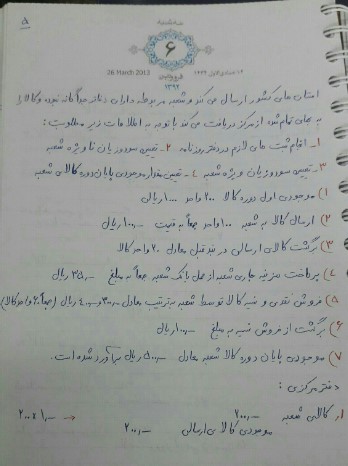 ۸
سه شنبه
۶
فروردین
۱۳۹۲
26 March 2013
۱۴ جمادی الاول ۱۴۳۴
استان های کشور ارسال می کند و شعبه مربوطه دارای دفاتر جداگانه نبوده و کالا را
به بهای تمام شده از مرکز دریافت می کند با توجه به اطلاعات زیر مطلوبست:
۱- انجام ثبت های لازم در دفتر روزنامه ۲- تعیین سود و زیان ناویژه شعبه
۳- تعیین سود و زیان ویژه شعبه ۴- تعیین مقدار موجودی پایان دوره کالای شعبه
۱) موجودی اول دوره کالا ۲۰۰ واحد ریال
۲) ارسال کالا به شعبه واحد جمعاً به قیمت ریال
۳) برگشت کالای ارسالی در بند قبل معادل ۲۰ واحد کالا
۴) پرداخت هزینه جاری شعبه از محل بانک شعبه جمعاً به مبلغ ۳۵۰,- ریال
۵) فروش نقدی و نسیه کالا توسط شعبه به ترتیب معادل ریال (جمعاً واحد کالا)
۶) برگشت از فروش نسیه به مبلغ ۱۰۰,- ریال
۷) موجودی پایان دوره کالا شعبه معادل ۵۰۰,- ریال برآورد شده است.
دفتر مرکزی:
کالای شعبه ۲۰۰,-
موجودی کالای ارسالی ۲۰۰,-